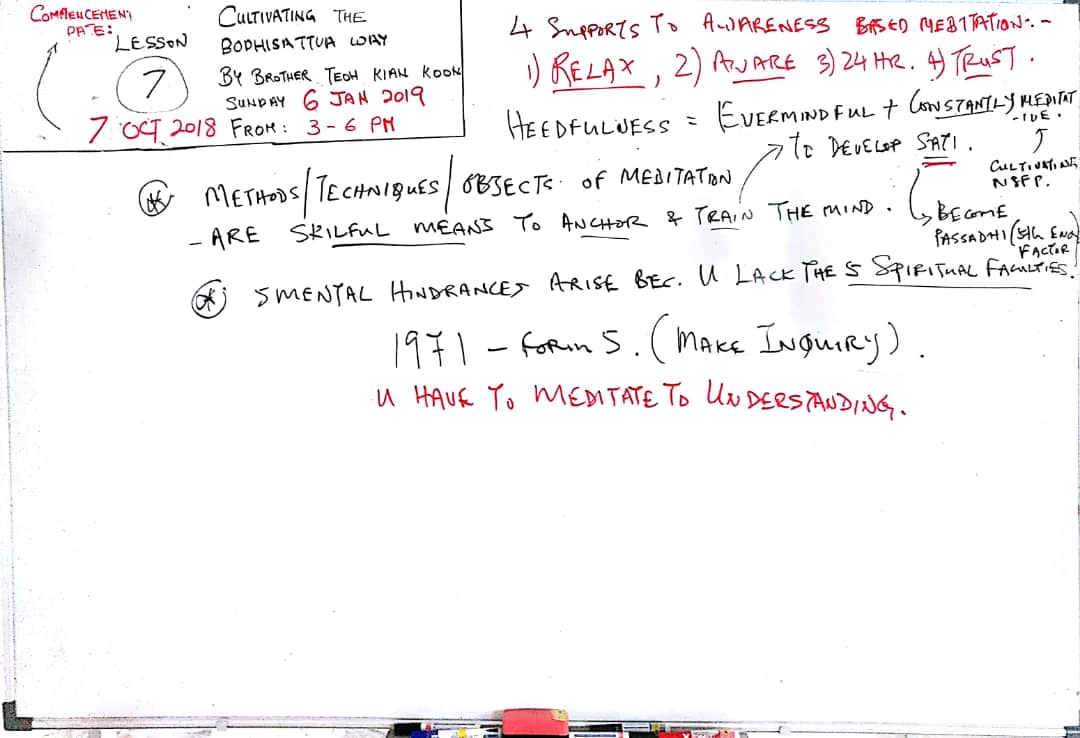 COMMENCEMENT
DATE:
LESSON
7
7 OCT 2018
CULTIVATING THE
BODHISATTVA WAY
BY BROTHER TEOH KIAN KOON
SUNDAY 6 JAN 2019
FROM: 3-6 PM
4 SUPPORTS TO AWARENESS BASED MEDITATION:-
1) RELAX, 2) AWARE 3) 24 HR. 4) TRUST.
HEEDFULNESS = EVERMINDFUL + CONSTANTLY MEDITAT
-IVE.
→ TO DEVELOP SATI.
CULTIVATING
N8FP.
* METHODS/TECHNIQUES/OBJECTS OF MEDITATION
- ARE SKILFUL MEANS TO ANCHOR & TRAIN THE MIND.
BECOME
PASSADHI (5th ENQ
FACTOR
* 5 MENTAL HINDRANCES ARISE BEC. U LACK THE 5 SPIRITUAL FACULTIES.
1971 - FORM 5. (MAKE INQUIRY).
U HAVE TO MEDITATE TO UNDERSTANDING.